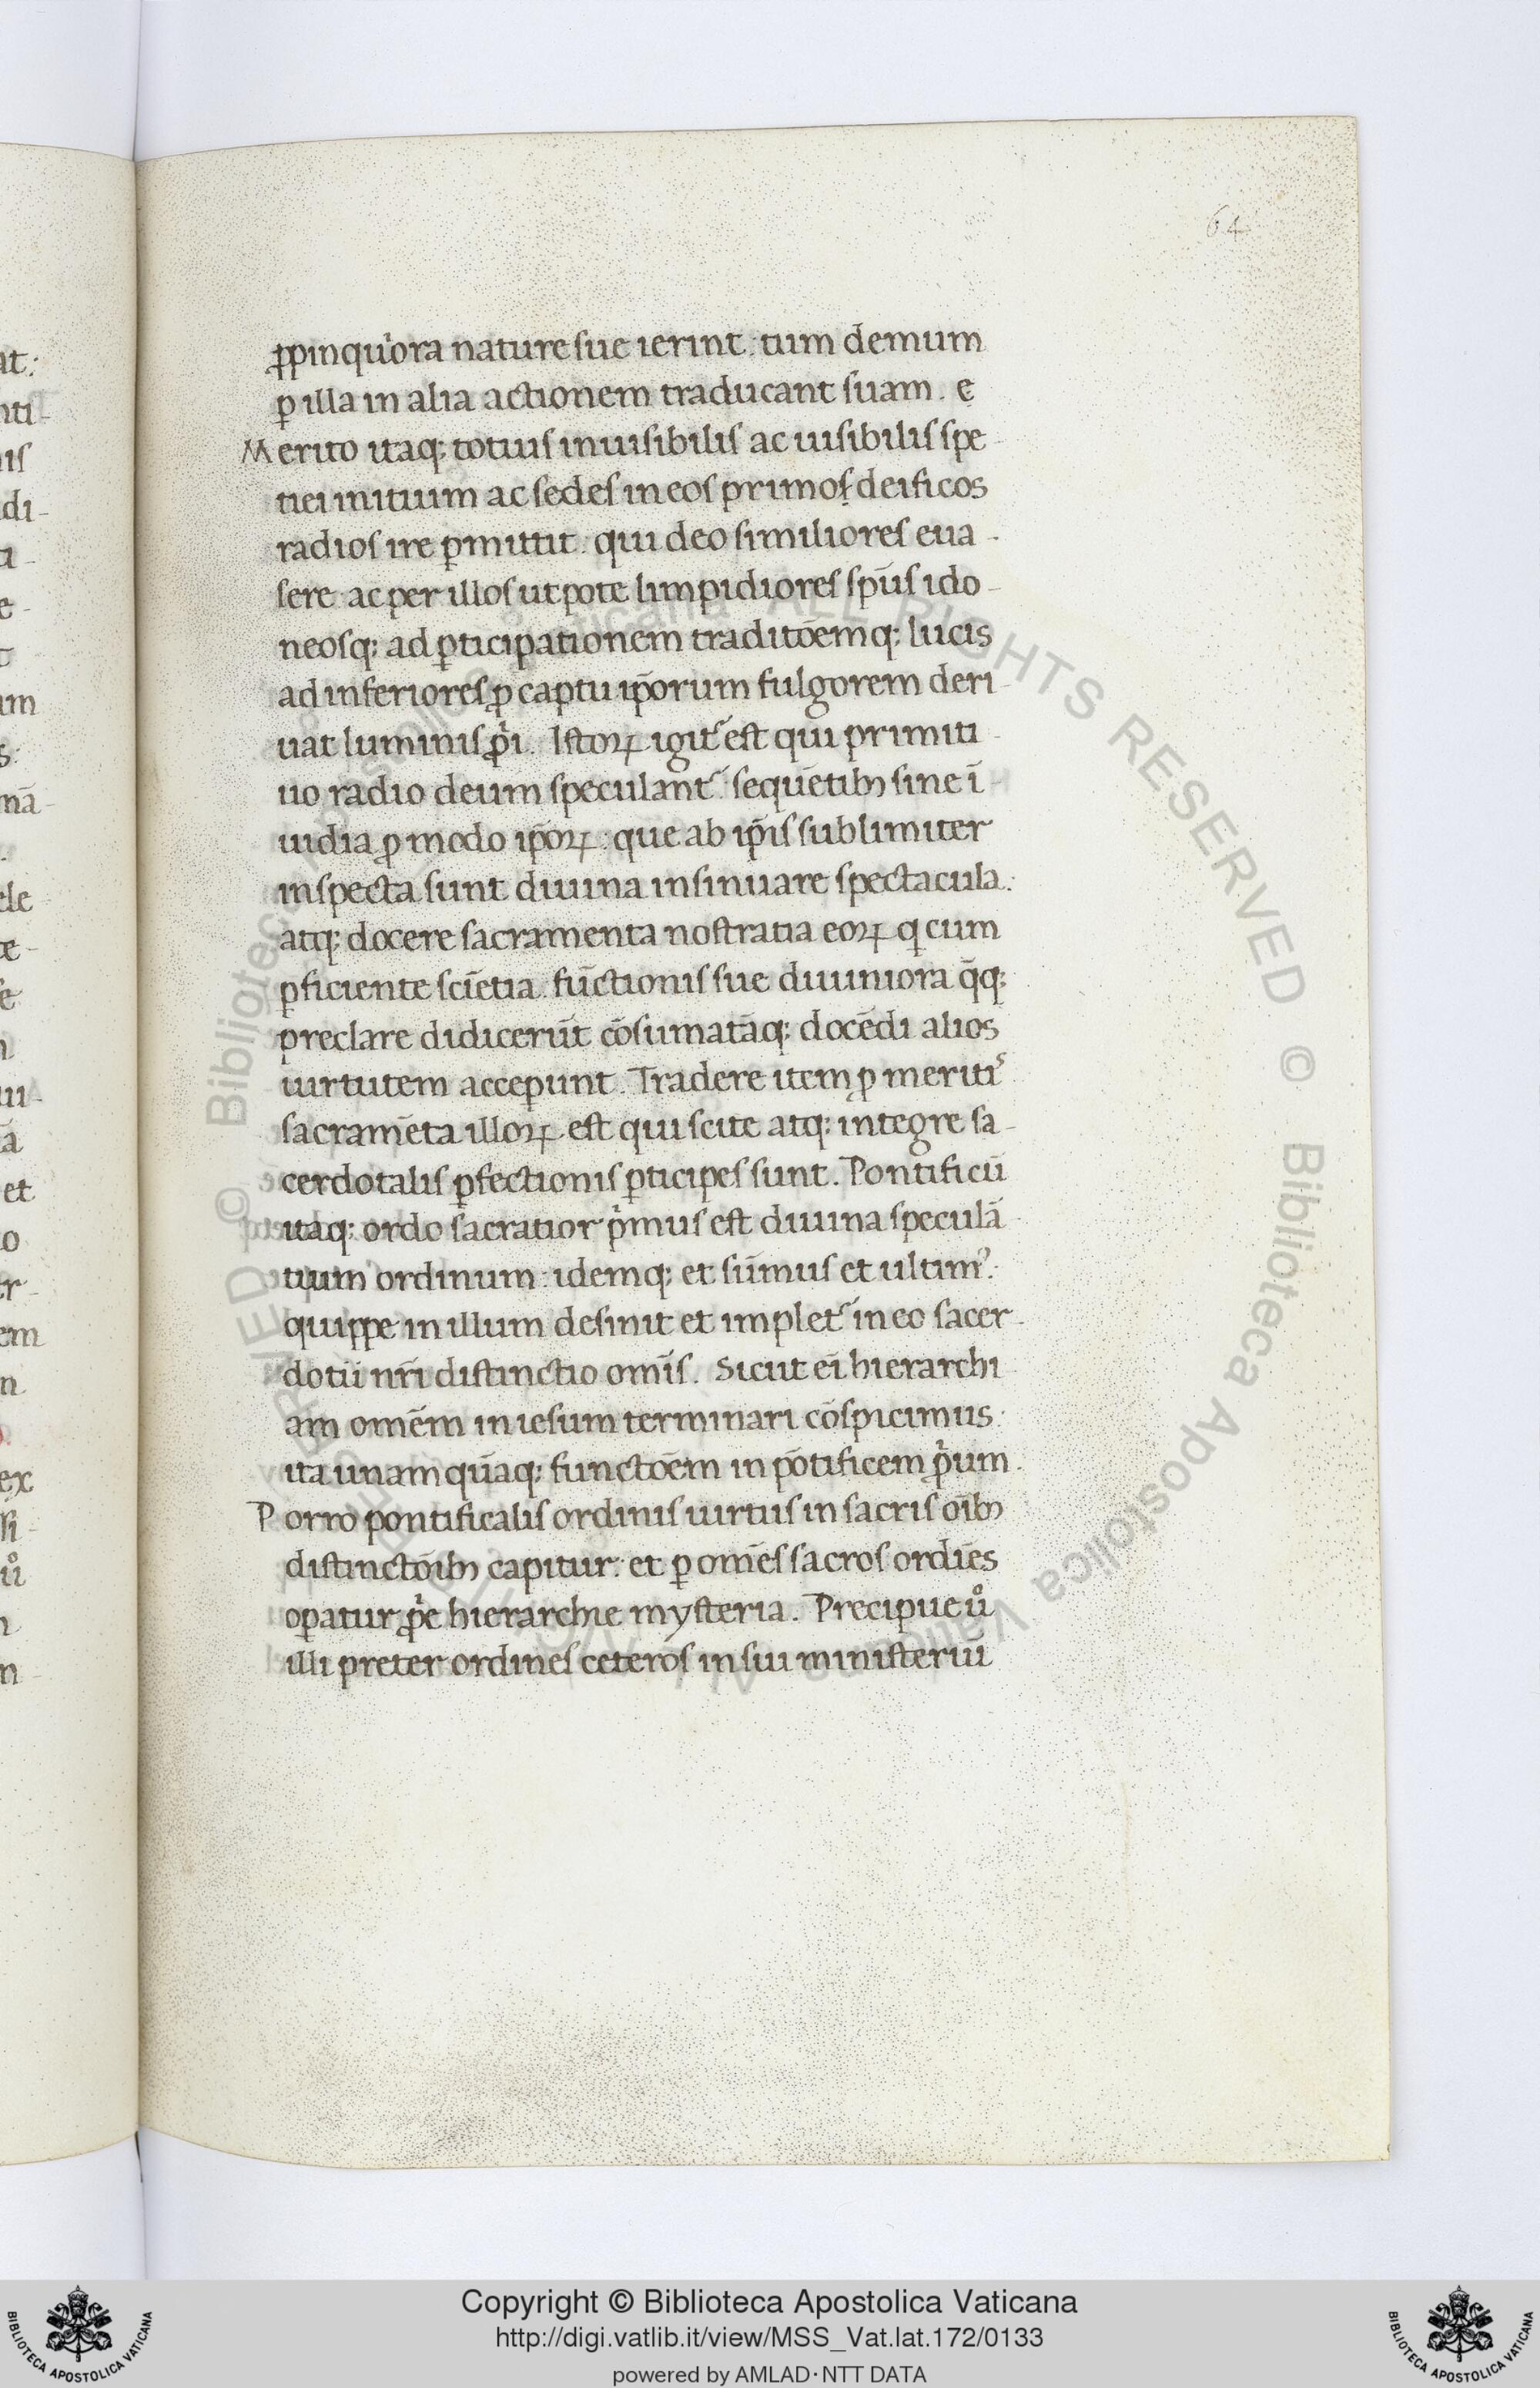 64
ꝓpinqu᷒ora nature sue ierint: tum demum
ꝑ illa in alia actionem traducant suam. ę
Merito itaq; totius inuisibilis ac uisibilis spe-
tiei initium ac sedes in eos primos deificos
radios ire ꝑmittit: qui deo similiores eua-
sere: ac per illos utpote limpidiores spūs ido-
neosq; ad ꝑticipationem traditōemq; lucis
ad inferiores ꝓ captu ip̄orum fulgorem deri-
uat luminis ꝓͥi. Istoꝝ igit᷑ est qui primiti-
uo radio deum speculant᷑: sequētibꝫ sine ī-
uidia ꝓ modo ip̄oꝝ: que ab ip̄is sublimiter
inspecta sunt diuina insinuare spectacula:
atq; docere sacramenta nostratia eoꝝ q cum
ꝑficiente sciētia: fūctionis sue diuiniora q̄q;
preclare didicerūt cōsumatāq; docēdi alios
uirtutem acceꝑunt. Tradere item ꝓ meriti᷒
sacramēta illoꝝ est qui scite atq; integre sa-
cerdotalis ꝑfectionis ꝑticipes sunt. Pontificū
itaq; ordo sacratior pͥmus est diuina speculā
tium ordinum: idemq; et sūmus et ultimꝰ:
quippe in illum desinit et implet᷑ in eo sacer-
dotii nr̄i distinctio omīs. Sicut ei̅ hierarchi
am omēm in iesum terminari cōspicimus:
ita unam quāq; functōem in pōtificem ꝓͥum.
Porro pontificalis ordinis uirtus in sacris oībꝫ
distinctōibꝫ capitur: et ꝑ omēs sacros ordīes
oꝑatur ꝓͥe hierarchie mysteria. Precipue uͦ
illi preter ordines ceteros in sui ministeriū
at:
nti-
is
di-
a-
e-
um
s:
mā-
ele
te-
se
ui-
ā
et
o
tr-
em
n
ex
si-
uͦ
n-
© Biblioteca Apostolica Vaticana ALL RIGHTS RESERVED © Biblioteca Apostolica Vaticana ALL RIGHTS RESERVED
Copyright © Biblioteca Apostolica Vaticana
http://digi.vatlib.it/view/MSS_Vat.lat.172/0133
powered by AMLAD·NTT DATA
BIBLIOTECA APOSTOLICA VATICANA
BIBLIOTECA APOSTOLICA VATICANA